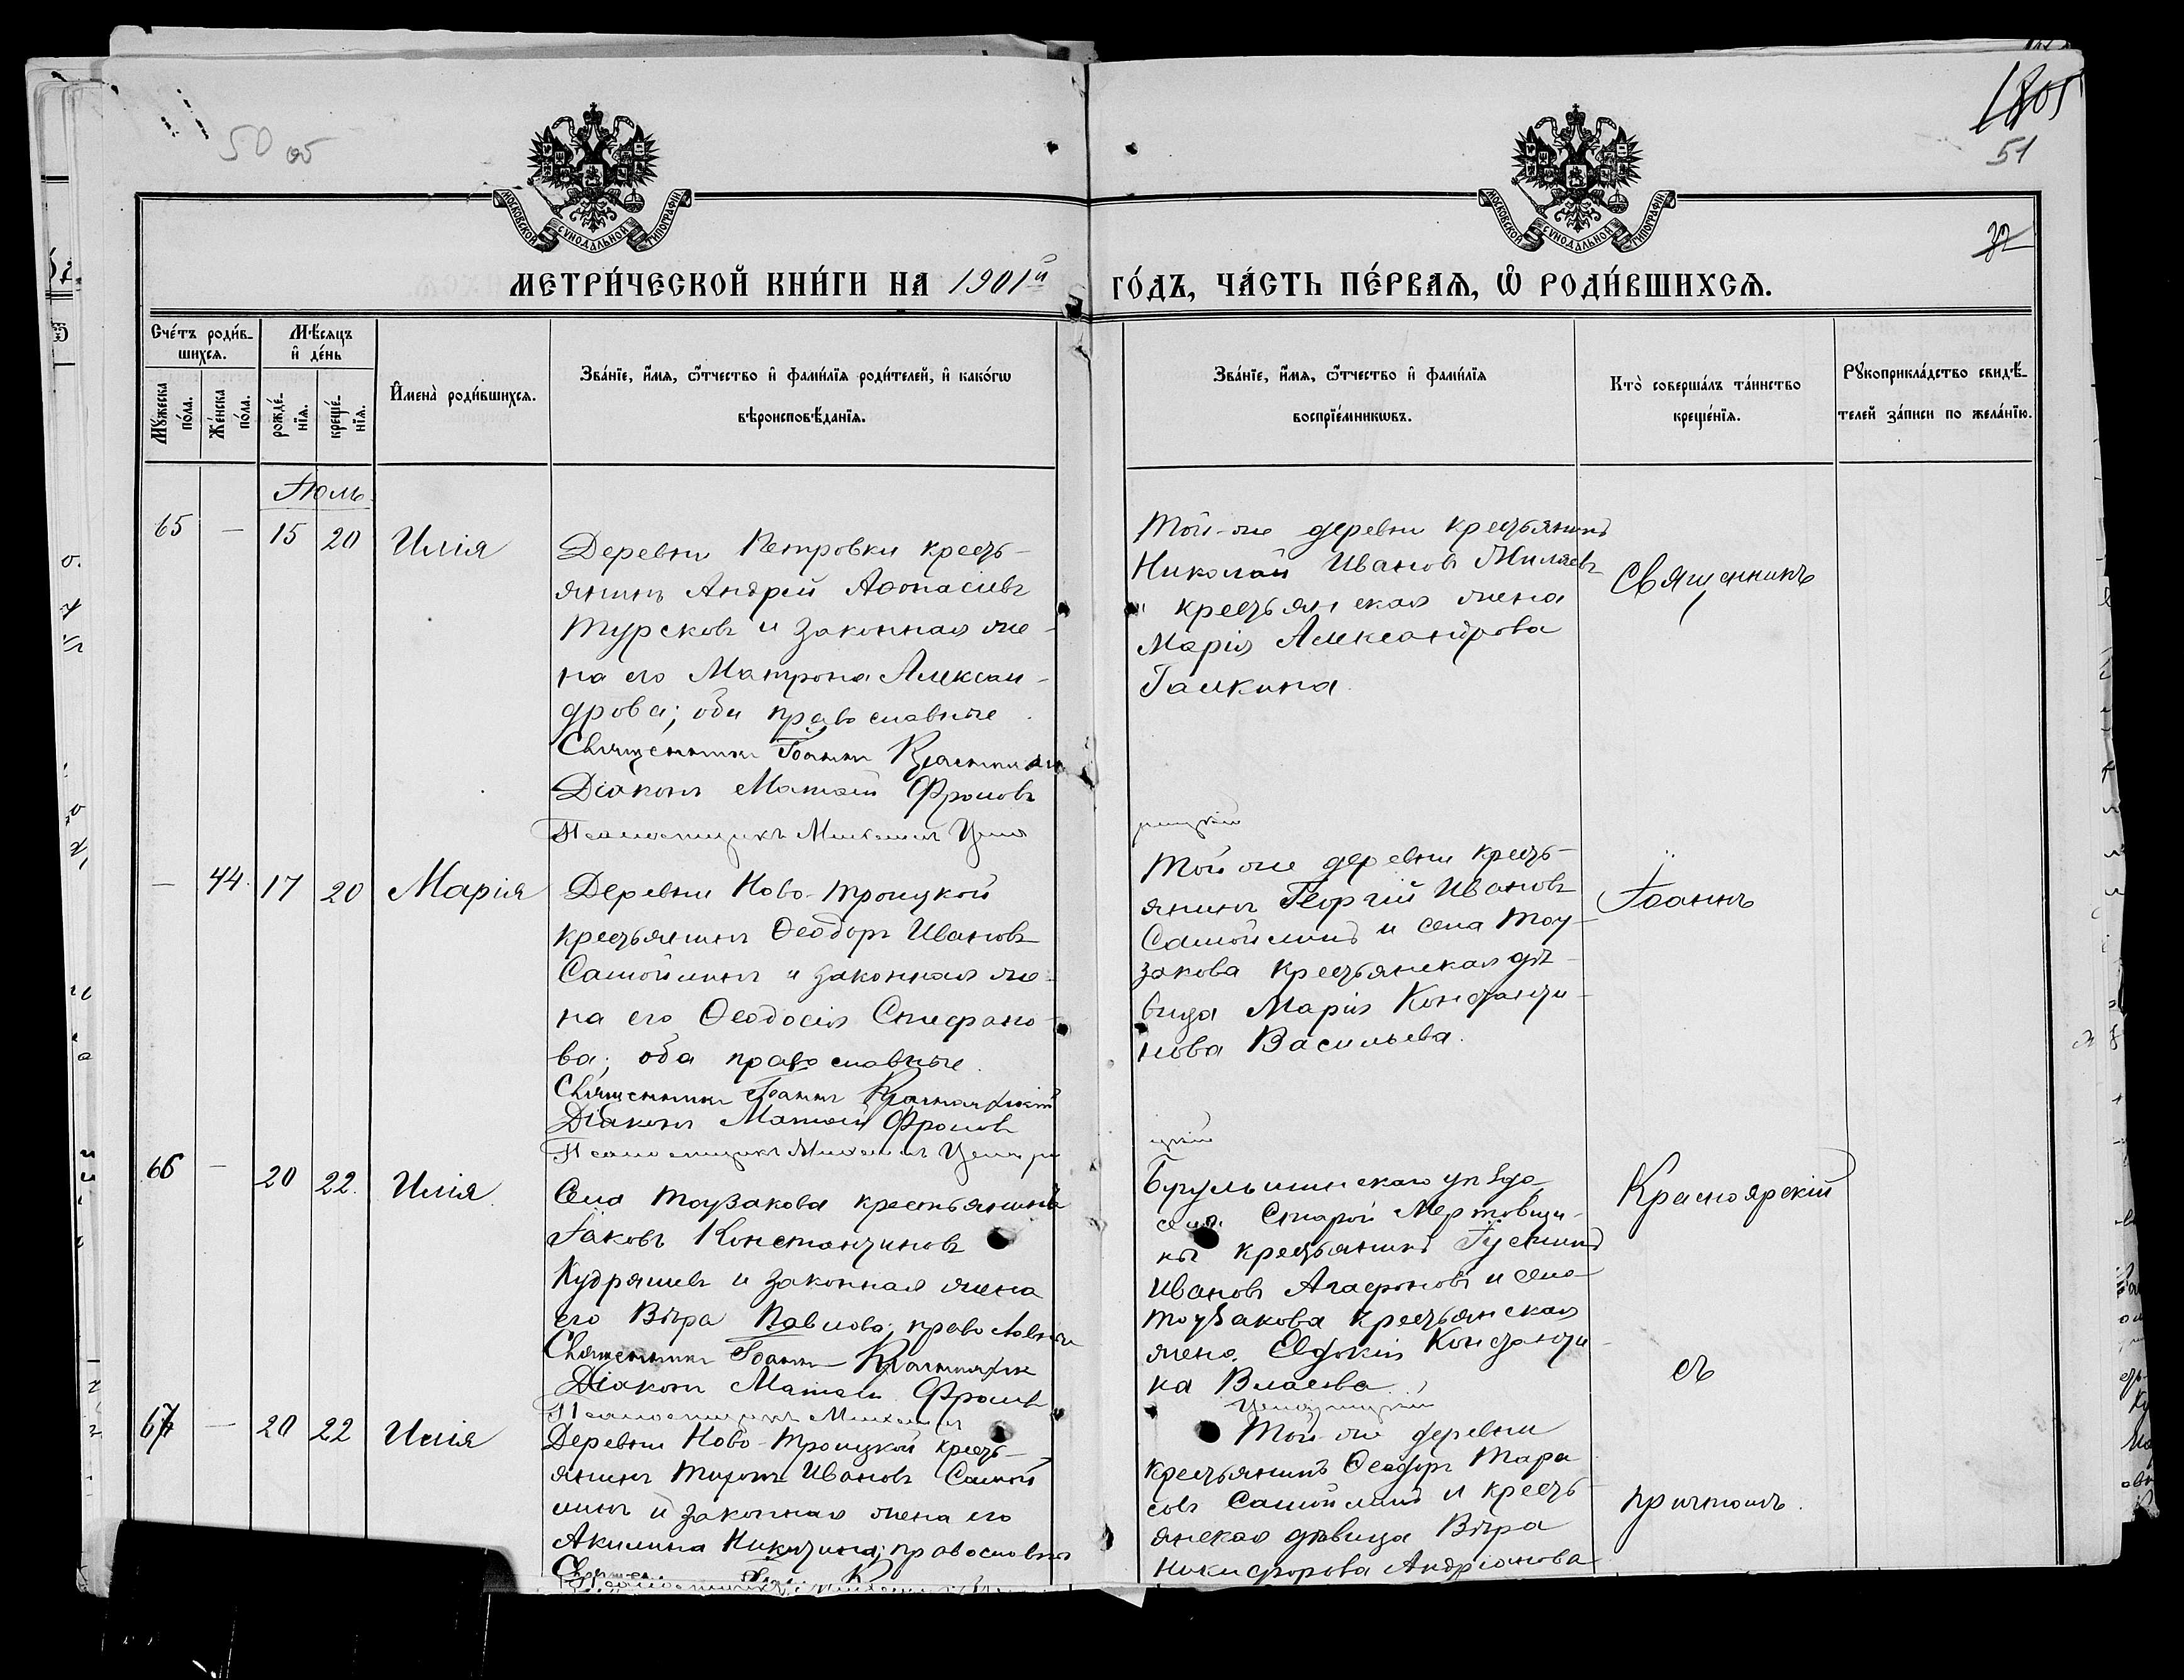 50 об
1801
51
32
МОСКОВСКОЙ СѴНОДАЛЬНОЙ ТИПОГРАФІИ.
МОСКОВСКОЙ СѴНОДАЛЬНОЙ ТИПОГРАФІИ.
МЕТРИ́ЧЕСКОЙ КНИ́ГИ НА 1901й ГО́ДЪ, ЧА́СТЬ ПЕ́РВАЯ, Ѡ РОДИ́ВШИХСЯ.
Сче́тъ роди́в-
шихся.
Мꙋ́жеска по́ла.
Же́нска по́ла.
Мѣ́сяцъ и де́нь
рожде́-
нія.
креще́-
нія.
Имена̀ роди́вшихся.
Зва́ніе, и́мя, ѻ́тчество и фами́лія роди́телей, и како́гѡ
вѣроисповѣ́данія.
Зва́ніе, и́мя, ѻ́тчество и фами́лія
воспріе́мникѡвъ.
Кто̀ соверша́лъ та́инство
креще́нія.
Рꙋкоприкла́дство свидѣ́-
телей за́писи по жела́нію.
Іюль.
65 — 15 20 Илія
Деревни Петровки кресть-
янинъ Андрей Аѳонасіевъ
Турсковъ и законная же-
на его Матрона Алексан-
дрова; оби православные.
Священникъ Іоаннъ
Діаконъ Матѳей Фроловъ
Псаломщикъ Михаилъ
Той-же деревни крестьянинъ
Николай Ивановъ Миляевъ
и крестьянская жена
Марія Александрова
Галкина.
Священникъ
— 44. 17 20 Марія
Деревни Ново-Троицкой
крестьянинъ Ѳеодоръ Ивановъ
Самойлинъ и законная же-
на его Ѳеодосія Стефано-
ва; оба православные.
Священникъ Іоаннъ Красноярскій
Діаконъ Матѳей Фроловъ
Псаломщикъ Михаилъ
Той же деревни кресть-
янинъ Георгій Ивановъ
Самойлинъ и села Тоу-
закова крестьянская дѣ-
вица Марія Константи-
нова Васильева.
Іоаннъ
66 — 20 22. Илія
Села Тоузакова крестьянинъ
Іаковъ Константиновъ
Кудряшевъ и законная жена
его Вѣра Павлова; православные
Священникъ Іоаннъ
Діаконъ Матѳей Фроловъ
Псаломщикъ Михаилъ
Бугульминскаго уѣзда
села Старой
крестьянинъ
Ивановъ Агафоновъ и села
Тоузакова крестьянская
жена Евдокія Константи-
на Власова
Красноярскій
съ
67 — 20 22 Илія
Деревни Ново-Троицкой кресть-
янинъ Ивановъ Самой
линъ и законная жена его
Акилина Никитина; православные
Той же деревни
крестьянинъ Ѳеодоръ Тара
совъ Самойлинъ и кресть-
янская дѣвица Вѣра
Никифорова Андріанова
причтомъ.